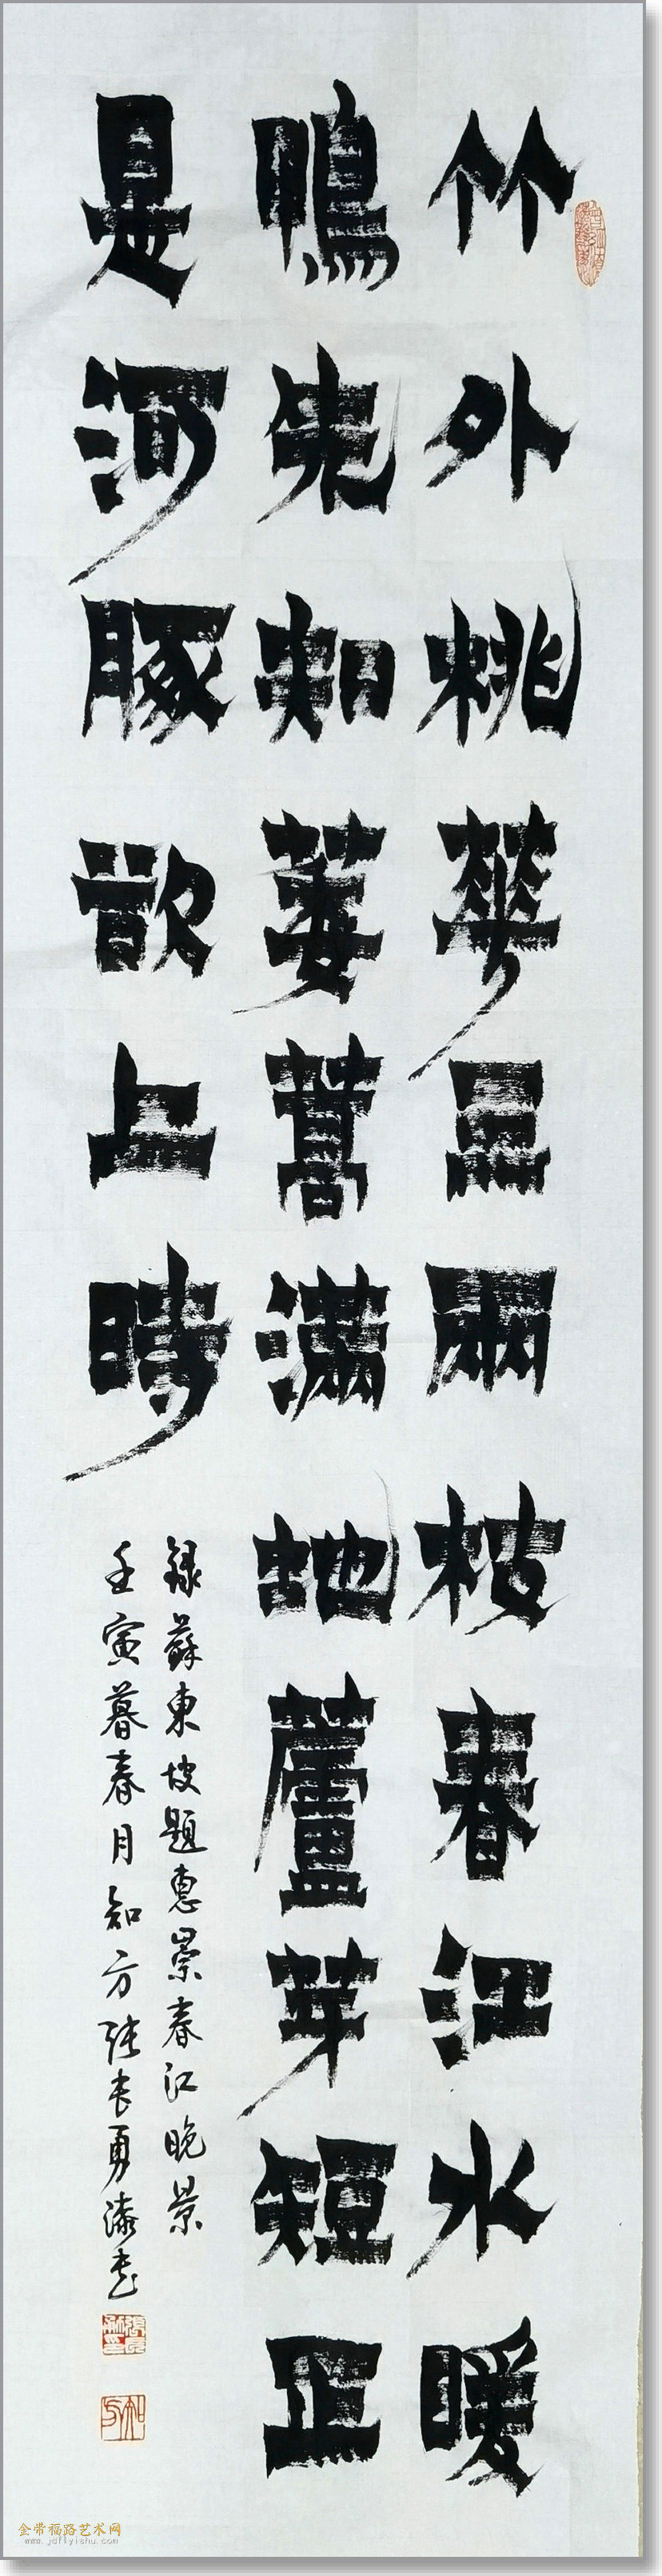 竹外桃華三兩枝春江水暖
鴨先知蔞蒿滿地蘆芽短正
是河豚欲上時
錄蘇東坡題惠崇春江晚景
壬寅暮春月知方張長勇漆書
知方
金带福路艺术网
www.jdflyishu.com